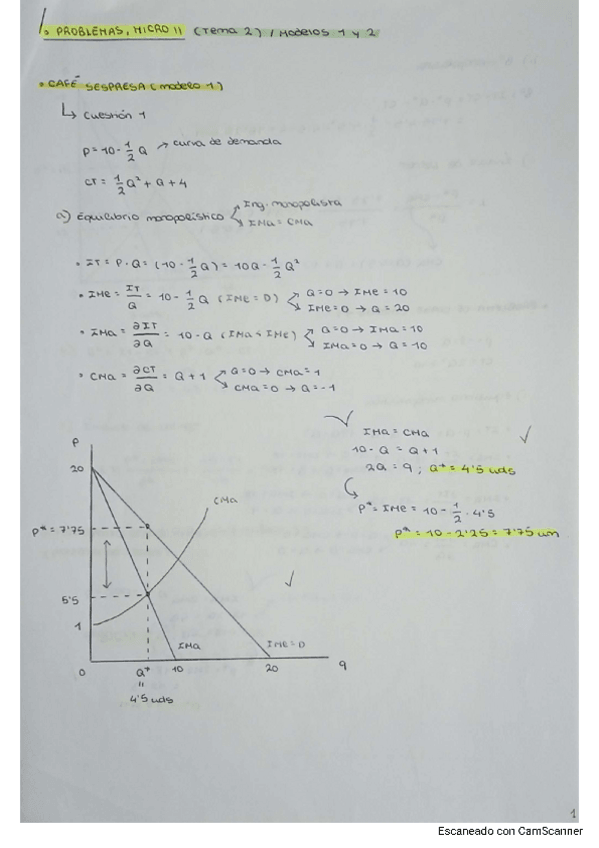 1. PROBLEMAS, MICRO II (Tema 2) / Modelos 1 y 2
• CAFÉ SESPRESA (modelo 1)
↳ Cuestión 1
P = 10 - 1/2 Q → curva de demanda
CT = 1/2 Q² + Q + 4
a) Equilibrio monopolístico
Ing. monopolista
IMa = CMa
• IT = P · Q = (10 - 1/2 Q) = 10Q - 1/2 Q²
• IMe = IT/Q = 10 - 1/2 Q (IMe = D) Q=0 → IMe = 10
IMe = 0 → Q = 20
• IMa = ∂IT/∂Q = 10 - Q (IMa < IMe) Q=0 → IMa = 10
IMa = 0 → Q = 10
• CMa = ∂CT/∂Q = Q + 1 Q=0 → CMa = 1
CMa = 0 → Q = -1
IMa = CMa
10 - Q = Q + 1
2Q = 9 ; Q* = 4'5 uds
P* = IMe = 10 - 1/2 · 4'5
P* = 10 - 2'25 = 7'75 um
P
20
CMa
P* = 7'75
5'5
1
IMa
IMe = D
0
Q*
10
20
q
"
4'5 uds
1
Escaneado con CamScanner